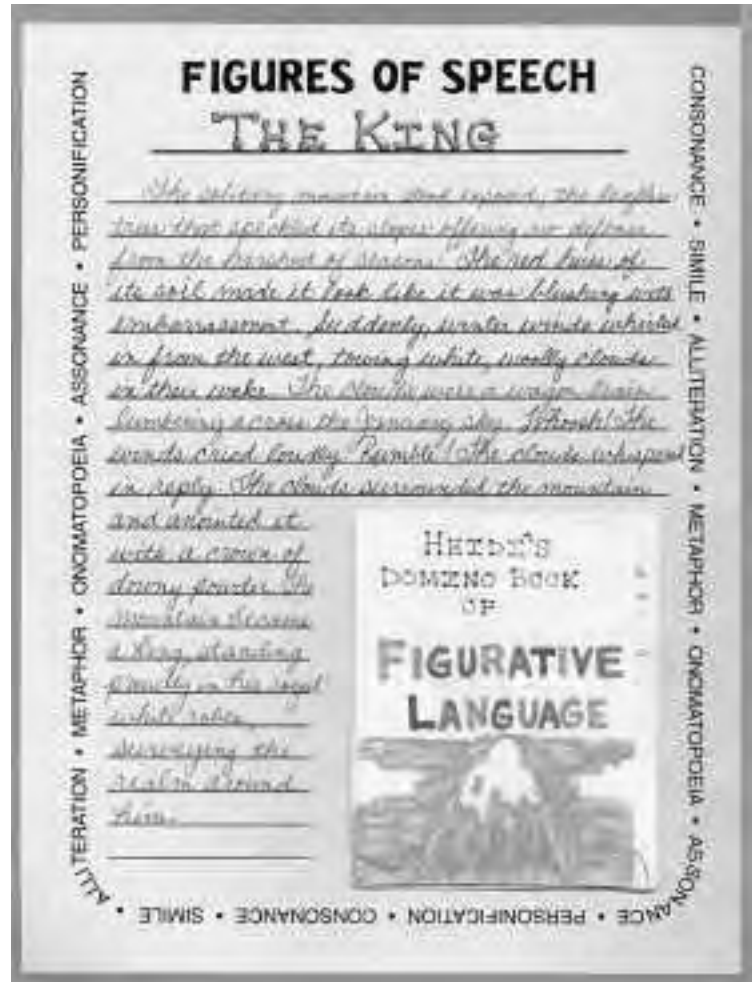 FIGURES OF SPEECH
THE KING
The solitary mountain stood exposed, the leafless
trees that speckled its slopes offering no defense
from the of seasons. The red hues of
its soil made it look like it was blushing with
embarrassment. Suddenly, winter winds whirled
in from the west, towing white, woolly clouds
in their wake. The clouds were a wagon train
lumbering across the sky. Whoosh! The
winds cried loudly. Rumble! The clouds whispered
in reply. The clouds surrounded the mountain
and anointed it
with a crown of
downy powder. The
mountain became
a king, standing
proudly in his royal
white robes,
surveying the
realm around
him.
HEIDI'S
DOMINO BOOK
OF
FIGURATIVE
LANGUAGE
ALLITERATION • METAPHOR • ONOMATOPOEIA • ASSONANCE • PERSONIFICATION
CONSONANCE • SIMILE • ALLITERATION • METAPHOR • ONOMATOPOEIA • ASSONANCE • PERSONIFICATION • CONSONANCE • SIMILE •